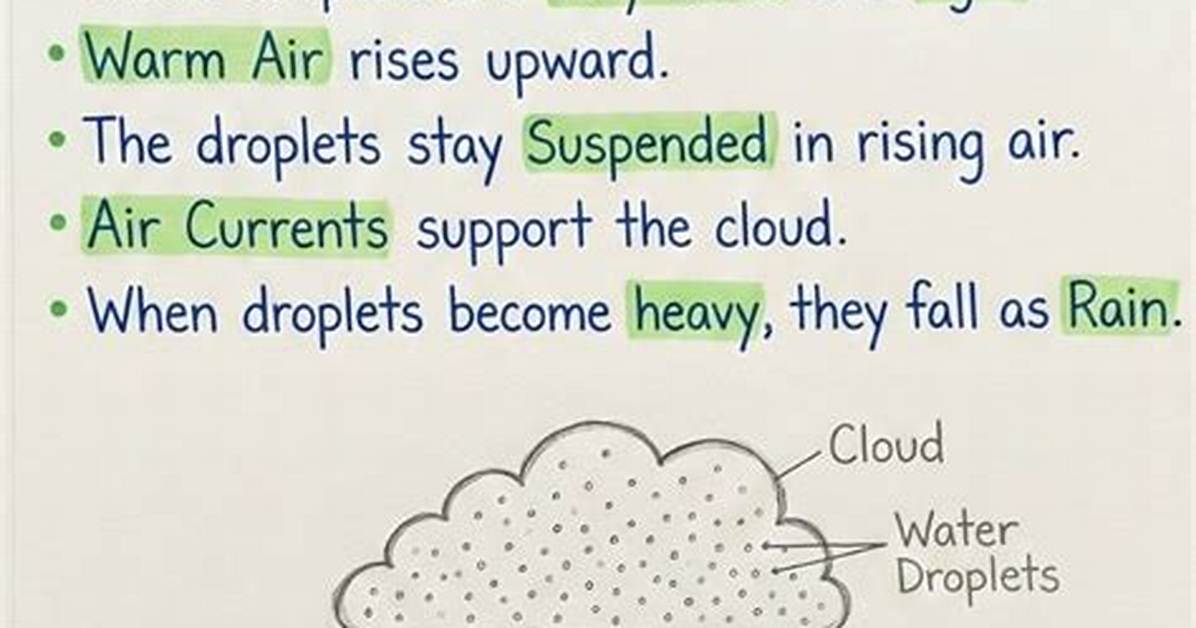 • Warm Air rises upward.
• The droplets stay Suspended in rising air.
• Air Currents support the cloud.
• When droplets become heavy, they fall as Rain.
Cloud
Water
Droplets